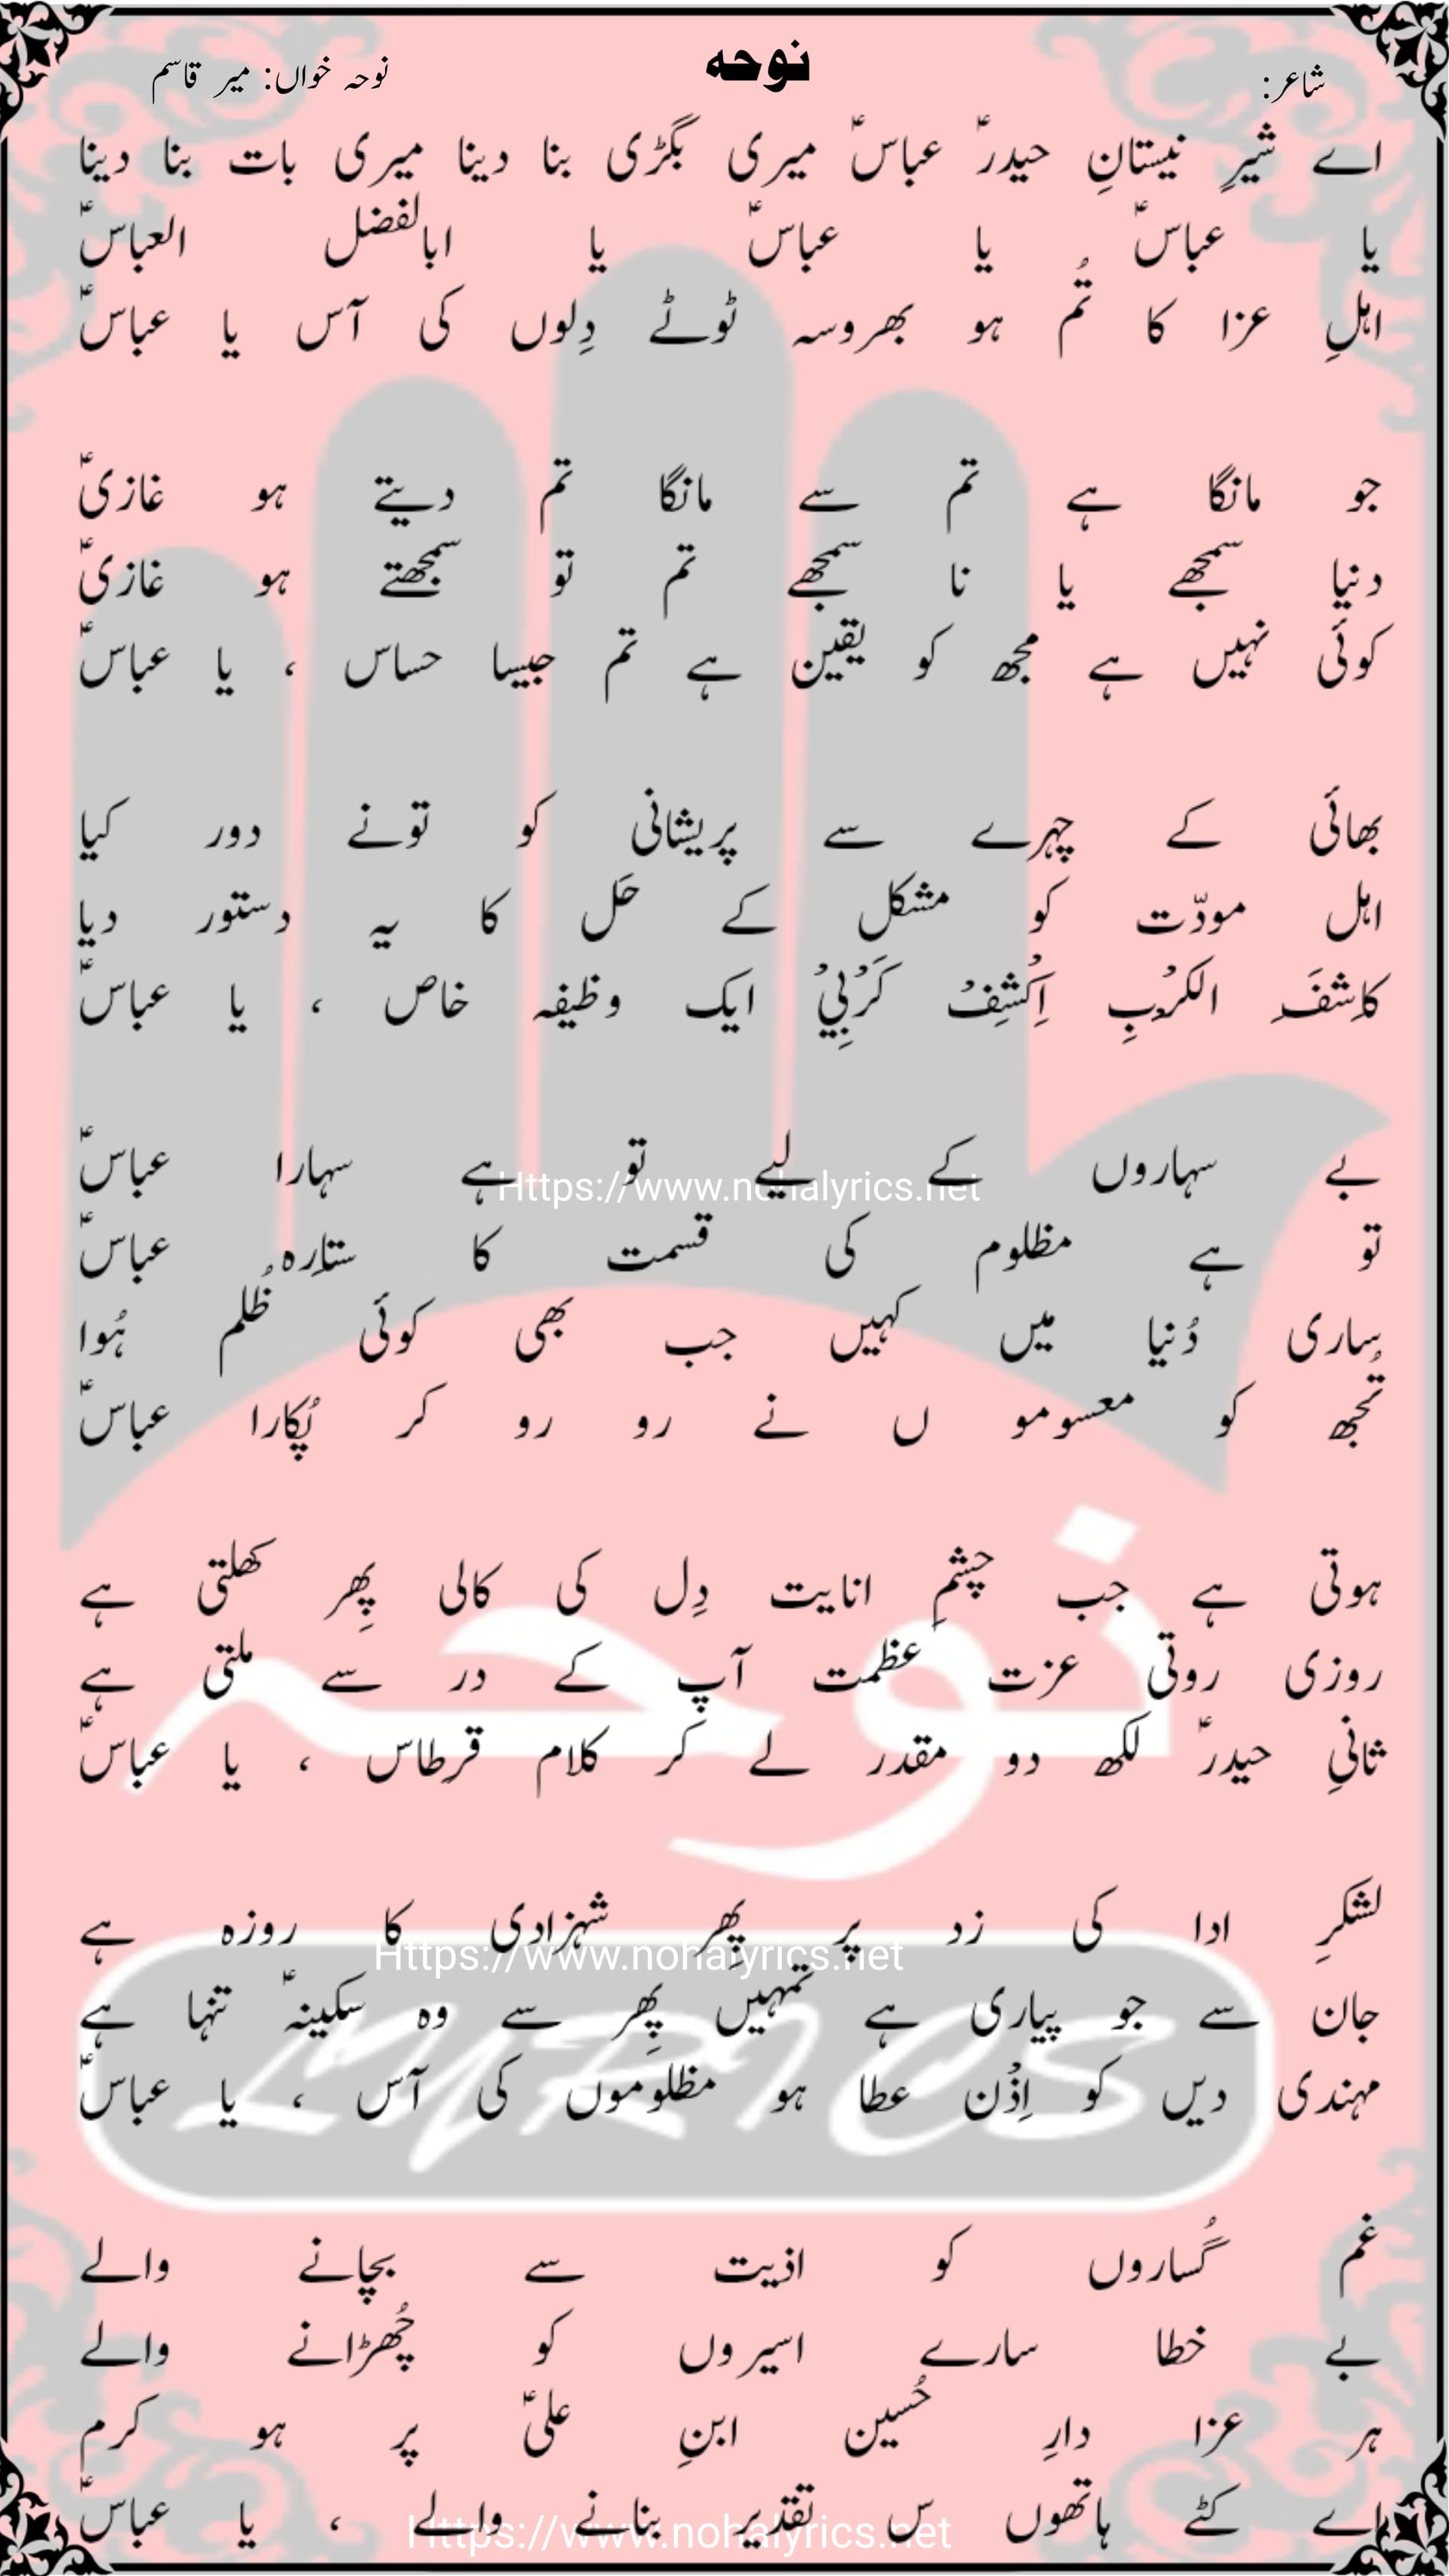 شاعر:
نوحہ
نوحہ خواں: میر قاسم
اے شیرِ نیستانِ حیدرؑ عباسؑ میری بگڑی بنا دینا میری بات بنا دینا
یا عباسؑ یا عباسؑ یا اباالفضل العباسؑ
اہلِ عزا کا تُم ہو بھروسہ ٹوٹے دِلوں کی آس یا عباسؑ
جو مانگا ہے تم سے مانگا تم دیتے ہو غازیؑ
دنیا سمجھے یا نا سمجھے تم تو سمجھتے ہو غازیؑ
کوئی نہیں ہے مجھ کو یقین ہے تم جیسا حساس ، یا عباسؑ
بھائی کے چہرے سے پریشانی کو تونے دور کیا
اہل مودّت کو مشکل کے حَل کا یہ دستور دیا
کاشِفَ الکرْبِ اِکْشِفْ کَرْبِيْ ایک وظیفہ خاص ، یا عباسؑ
بے سہاروں کے لیے تو ہے سہارا عباسؑ
Https://www.nohalyrics.net
تو ہے مظلوم کی قسمت کا ستارہ عباسؑ
ساری دُنیا میں کہیں جب بھی کوئی ظُلم ہُوا
تُجھ کو معسومو ں نے رو رو کر پُکارا عباسؑ
ہوتی ہے جب چشمِ انایت دِل کی کالی پِھر کھلتی ہے
روزی روتی عزت عظمت آپ کے در سے ملتی ہے
نوحہ
ثانیِ حیدرؑ لکھ دو مقدر لے کر کلام قرطاس ، یا عباسؑ
لشکرِ ادا کی زد پر پِھر شہزادی کا روزہ ہے
Https://www.nohalyrics.net
جان سے جو پیاری ہے تمہیں پِھر سے وہ سکینہؑ تنہا ہے
LYRICS
مہندی دیں کو اِذْن عطا ہو مظلوموں کی آس ، یا عباسؑ
غم گُساروں کو اذیت سے بچانے والے
بے خطا سارے اسیروں کو چُھڑانے والے
ہر عزا دارِ حُسین ابنِ علیؑ پر ہو کرم
اے کٹے ہاتھوں س تقدیر بنانے والے ، یا عباسؑ
Https://www.nohalyrics.net